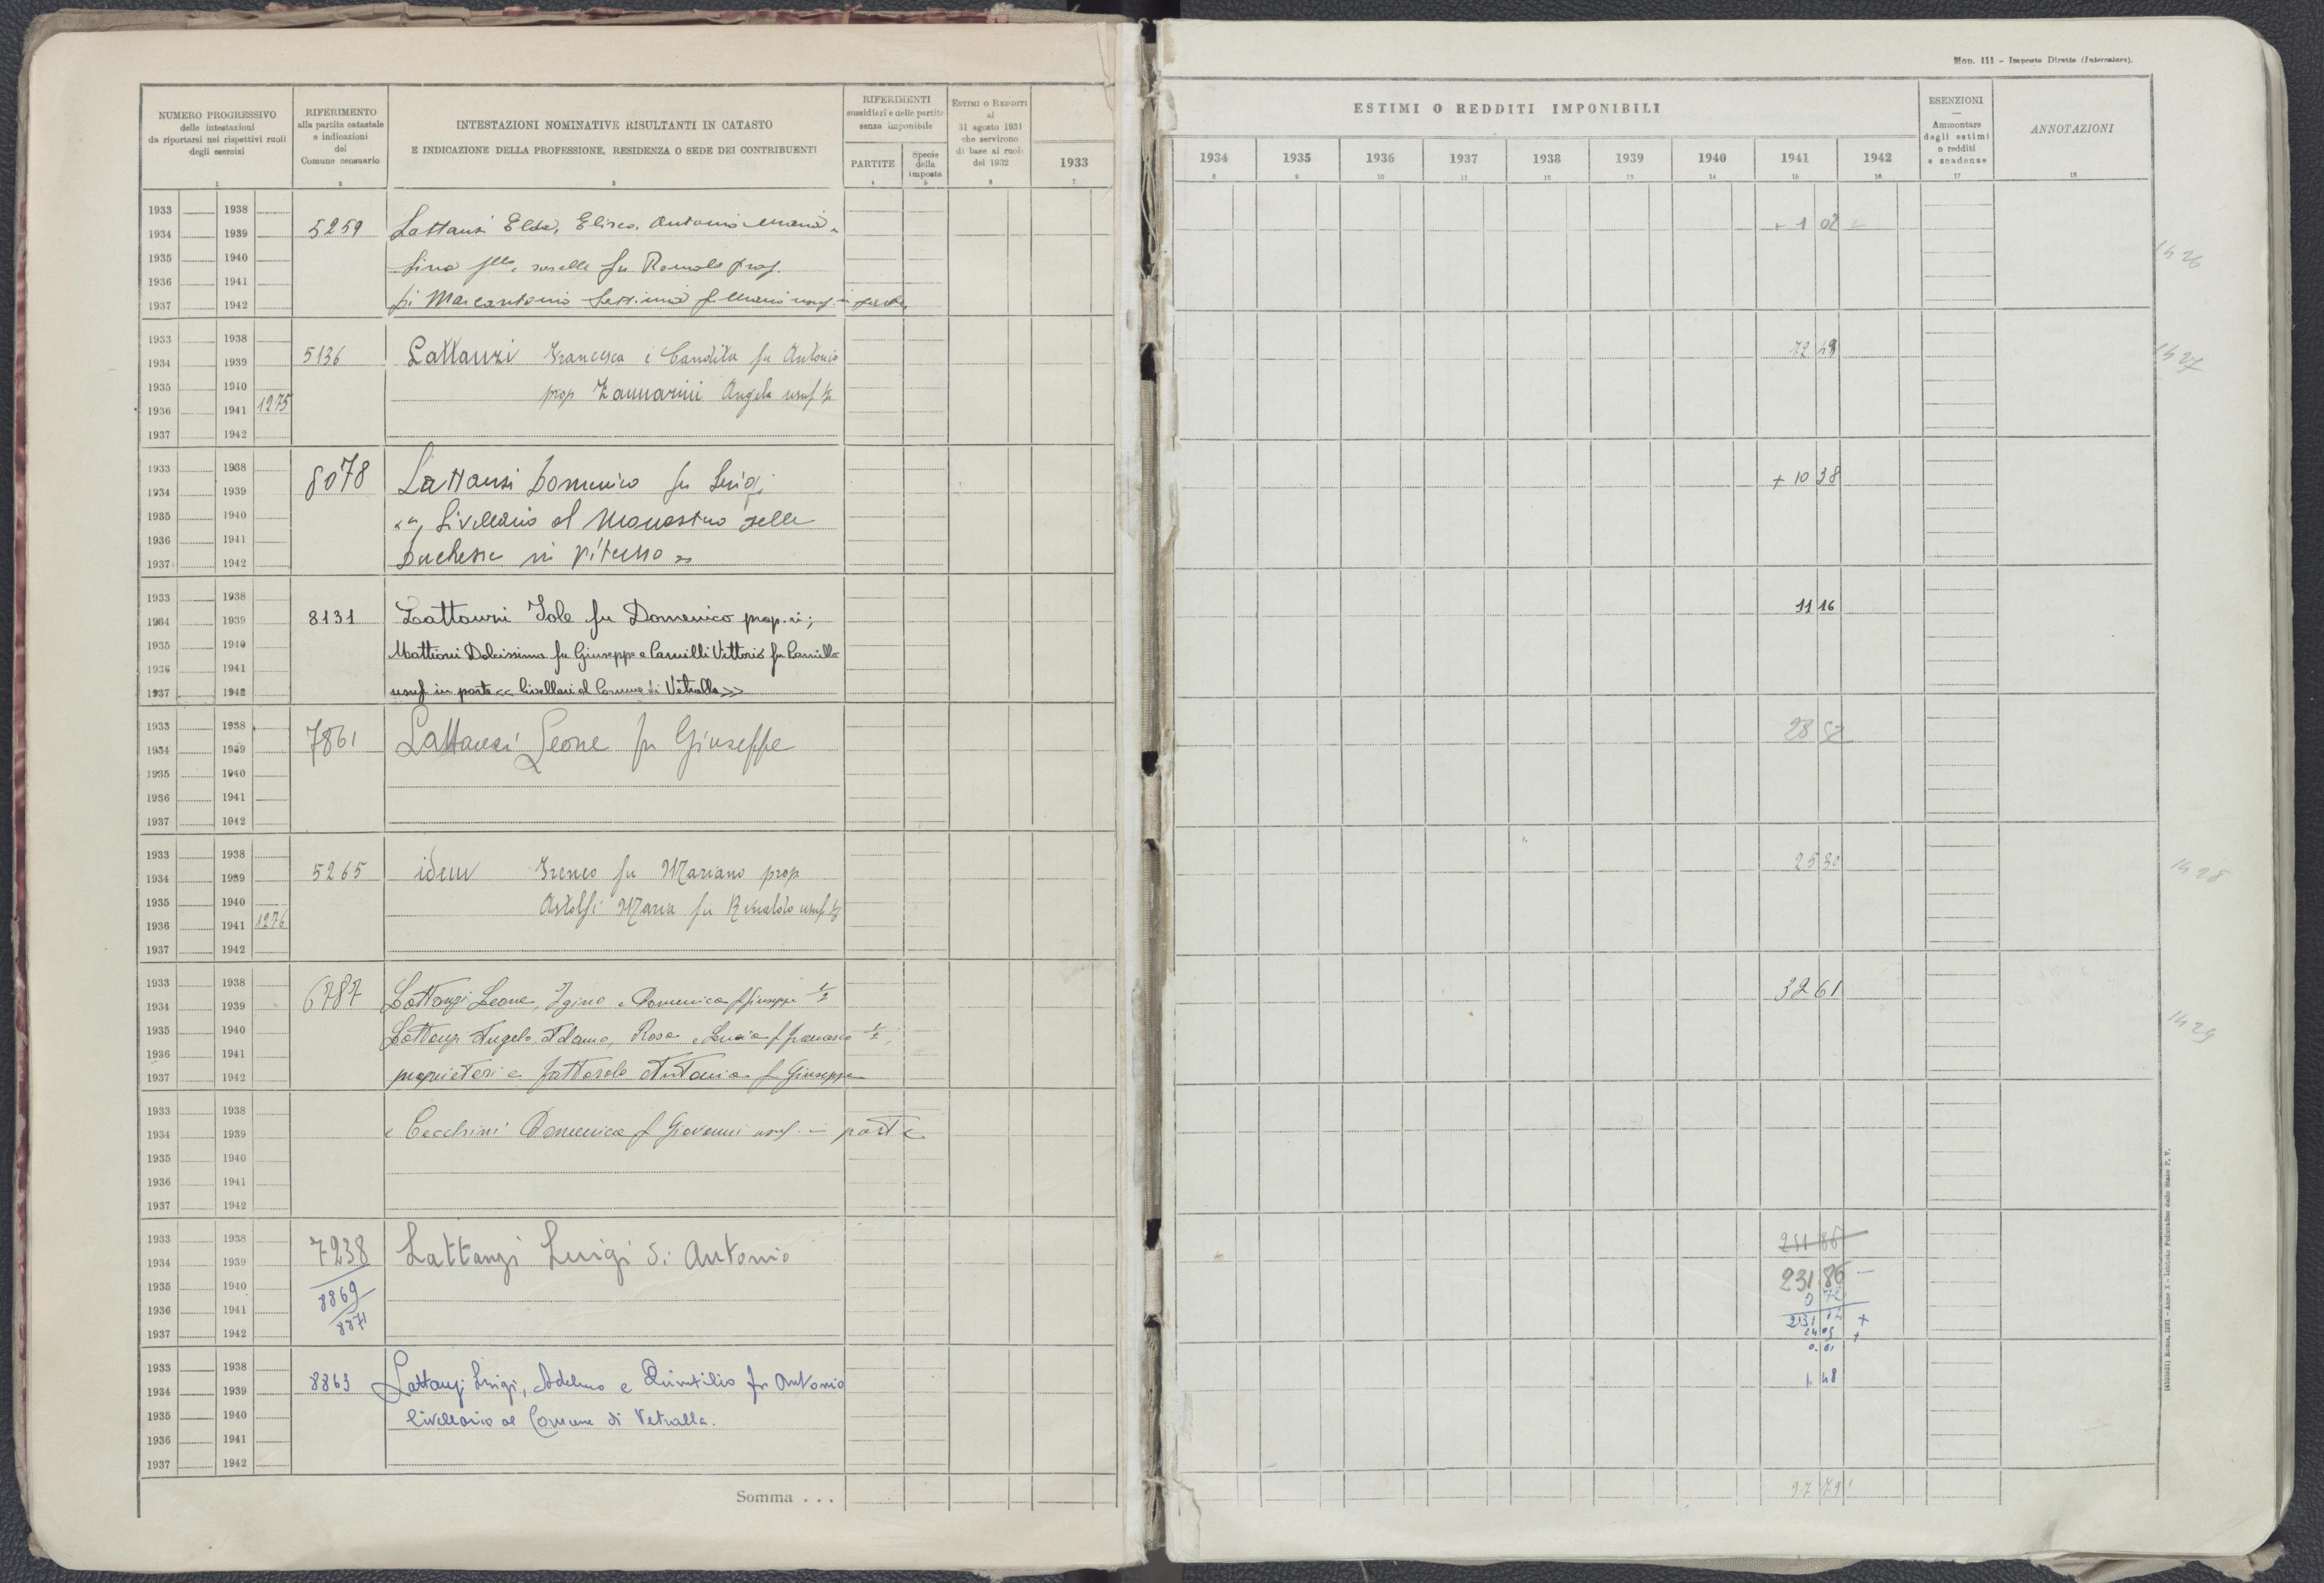 Mod. 111 - Imposte Dirette (Intercalare).
NUMERO PROGRESSIVO
delle intestazioni
da riportarsi nei rispettivi ruoli
degli esercizi
1
RIFERIMENTO
alla partita catastale
e indicazioni
del
Comune censuario
2
INTESTAZIONI NOMINATIVE RISULTANTI IN CATASTO
E INDICAZIONE DELLA PROFESSIONE, RESIDENZA O SEDE DEI CONTRIBUENTI
3
RIFERIMENTI
sussidiari e delle partite
senza imponibile
PARTITE
4
Specie
della
imposta
5
ESTIMI O REDDITI
al
31 agosto 1931
che servirono
di base ai ruoli
del 1932
6
1933
7
ESTIMI O REDDITI IMPONIBILI
1934 1935 1936 1937 1938 1939 1940 1941 1942
8 9 10 11 12 13 14 15 16
ESENZIONI
Ammontare
degli estimi
o redditi
e scadenze
17
ANNOTAZIONI
18
1933 1938
1934 1939 5259 Lattanzi Elda, Elisea, Antonio Maria + 1 02
1935 1940 fu Romolo prop. 1426
1936 1941
1937 1942 Di Marcantonio Settimia f. Mario usuf. in parte
1933 1938
1934 1939 5136 Lattanzi Francesca e Candida fu Antonio 72 48 1427
1935 1940 prop Zannarini Angela usuf
1936 1941 1275
1937 1942
1933 1938
1934 1939 8078 Lattanzi Domenico fu Luigi + 10 38
1935 1940 Livellario al Monastero delle
1936 1941
1937 1942 Duchesse in Viterbo
1933 1938
1934 1939 8131 Lattanzi Iole fu Domenico prop.ri; 11 16
1935 1940 Mattioni Dolcissima fu Giuseppe e Camilli Vittorio fu Camillo
1936 1941
1937 1942 usuf in parte << livellari al Comune di Vetralla >>
1933 1938
1934 1939 7861 Lattanzi Leone fu Giuseppe 28 52
1935 1940
1936 1941
1937 1942
1933 1938
1934 1939 5265 idem Ireneo fu Mariano prop 25 30 1428
1935 1940 Astolfi Maria fu Rinaldo usuf
1936 1941 1276
1937 1942
1933 1938
1934 1939 6787 Lattanzi Leone, Igino e Domenica f Giuseppe 1/2 32 61
1935 1940 Lattanzi Angelo, Adamo, Rosa e Lucia f Francesco 1/2 1429
1936 1941
1937 1942 proprietari e Antonia f Giuseppe
1933 1938
1934 1939 e Cecchini Domenica f Giovanni usuf. in parte
1935 1940
1936 1941
1937 1942
1933 1938 211 86
1934 1939 7238 Lattanzi Luigi di Antonio 231 86
1935 1940 8869 0 72
1936 1941 8871 231 14 +
1937 1942 24 03 +
0.61
1933 1938
1934 1939 8863 Lattanzi Luigi, Adelmo e Quintilio fu Antonio 1.48
1935 1940 livellario al Comune di Vetralla.
1936 1941
1937 1942
Somma . . .
(4103631) Roma, 1931 - Anno X - Istituto Poligrafico dello Stato P. V.